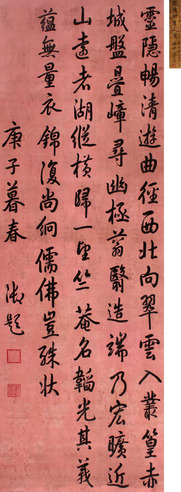 靈隱暢清遊曲徑西北向翠雲入叢篁赤
城盤疊嶂尋幽極蓊翳造端乃宏曠近
山遠者湖縱橫歸一望竺菴名韜光其義
蘊無量衣錦復尚絅儒佛豈殊狀
庚子暮春 御題